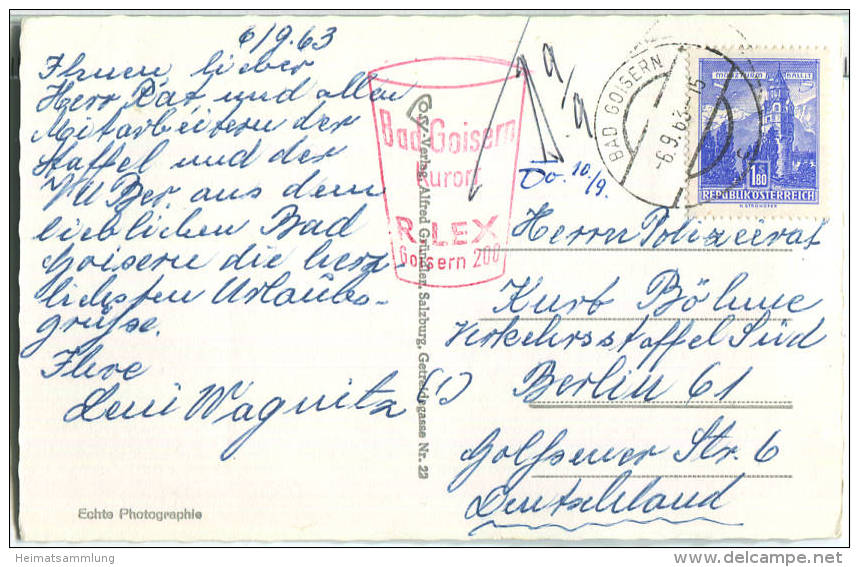 6/9.63
Ihnen lieber
Herr Rat und allen
Mitarbeitern der
Staffel und der
VU Ber. aus dem
lieblichen Bad
Goisern die herz-
lichsten Urlaubs-
grüsse.
Ihre
Leni Wagnitz
Echte Photographie
Heimatsammlung
Bad Goisern
Kurort
RILEX
Goisern 200
Cosy-Verlag Alfred Gründler, Salzburg, Getreidegasse Nr. 22
9/9
Do. 10./9.
BAD GOISERN
-6.9.63-15
1.80
REPUBLIK ÖSTERREICH
Herrn Polizeirat
Kurt Böhme
Verkehrsstaffel Süd
Berlin 61
Golssener Str. 6
Deutschland
www.delcampe.net